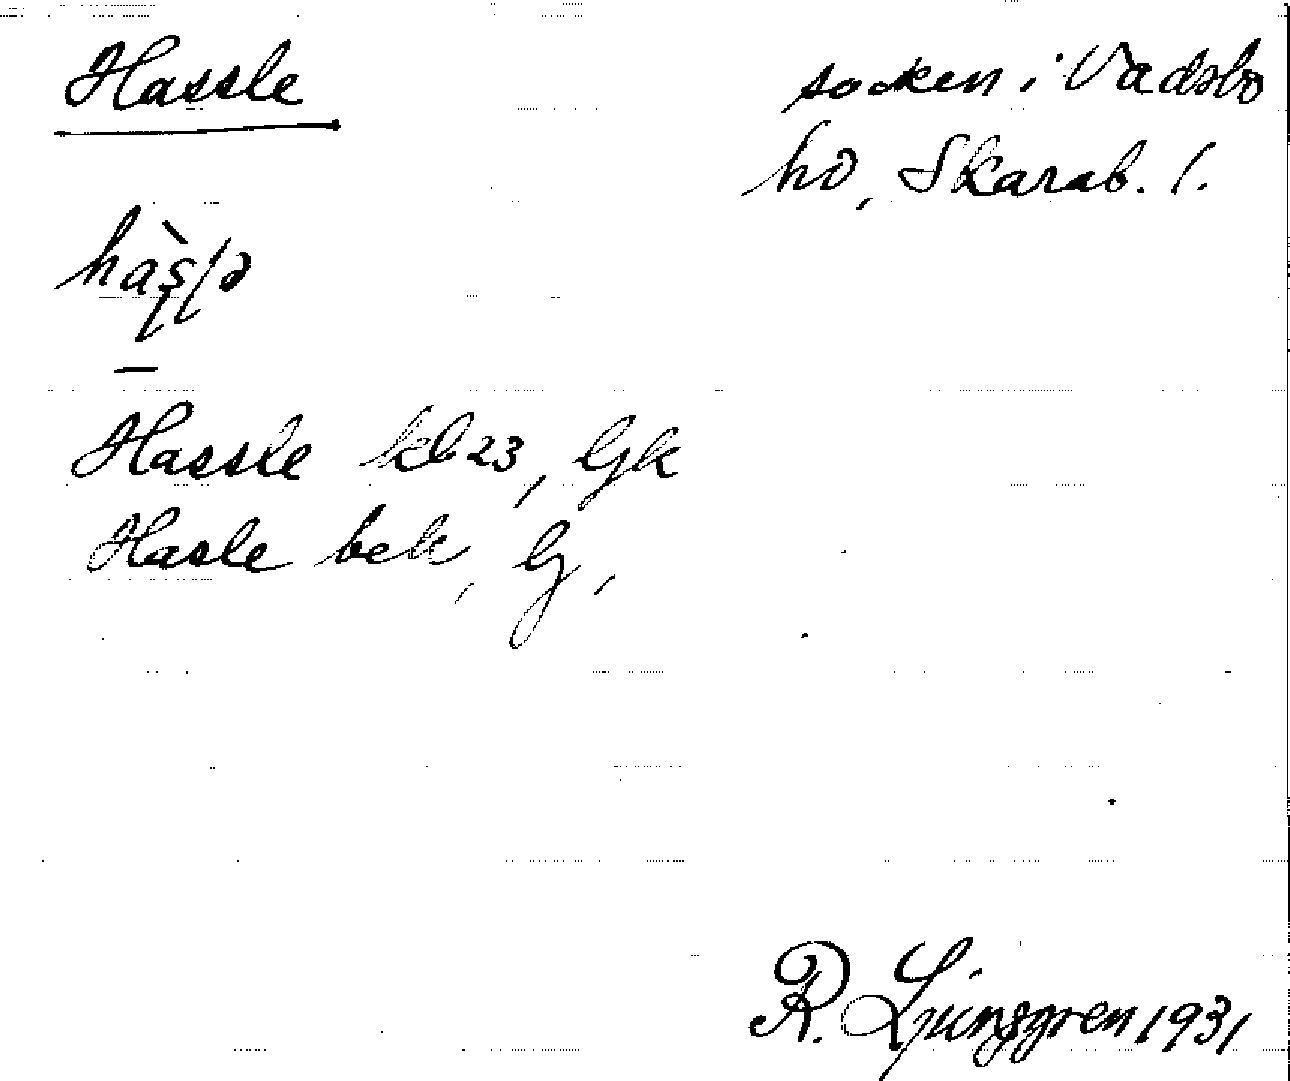 Hassle
socken i Vadsbo
hd, Skarab. l.
Hassle kb 23, Gk
Hasle bek, G,
R. Ljunggren 1931